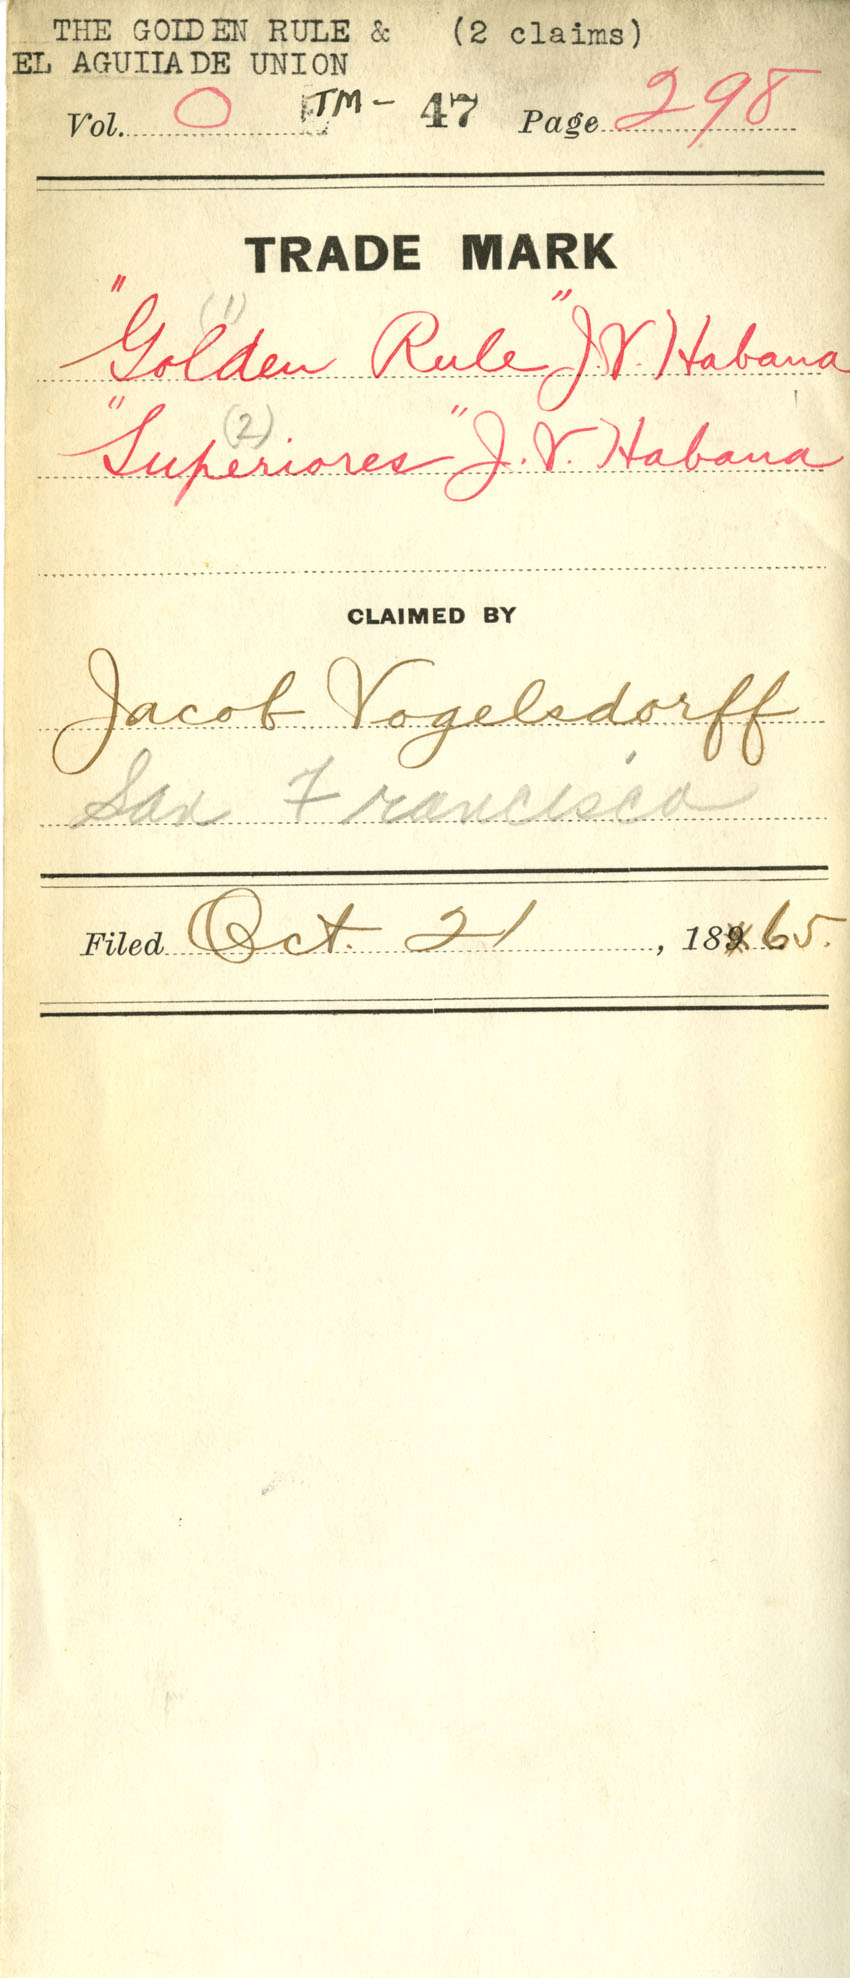 THE GOLDEN RULE & (2 claims)
EL AGUILA DE UNION
Vol. O TM- 47 Page 298
TRADE MARK
(1)
"Golden Rule" J.V. Habana
(2)
"Superiores" J.V. Habana
CLAIMED BY
Jacob Vogelsdorff
San Francisco
Filed Oct. 21, 189 65.